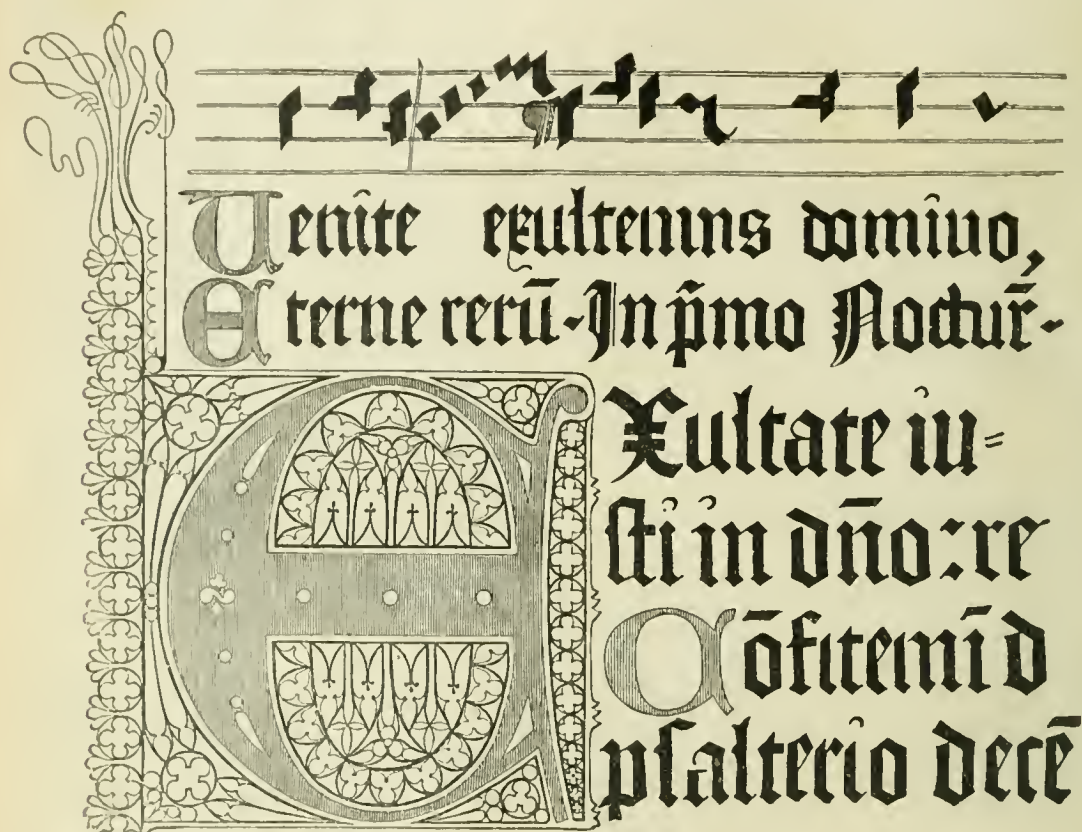 Uenite exultemus domino,
Eterne rerū·In p̄mo Noctur̄·
EXultate iu=
ſti in dn̄o:re
Cōfitemī d
pſalterio decē